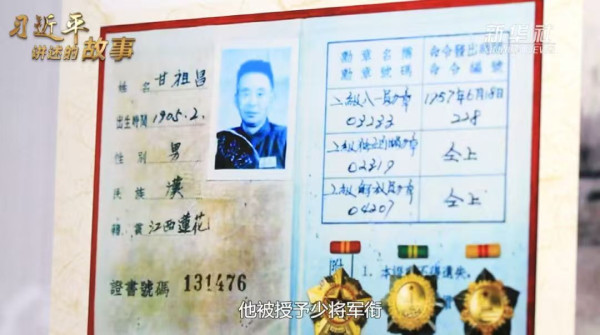 习近平
讲述的故事
新华社
姓名 甘祖昌
出生時間 1905.2.
性别 男
民族 漢
籍貫 江西蓮花
證書號碼 131476
勳章名稱 命令發出時間
勳章號碼 命令編號
二級八一勳章 1957年6月18日
03233 228
二級獨立自由勳章 仝上
02319
二級解放勳章 仝上
04207
附
1. 本證
不得遺失。
他被授予少将军衔